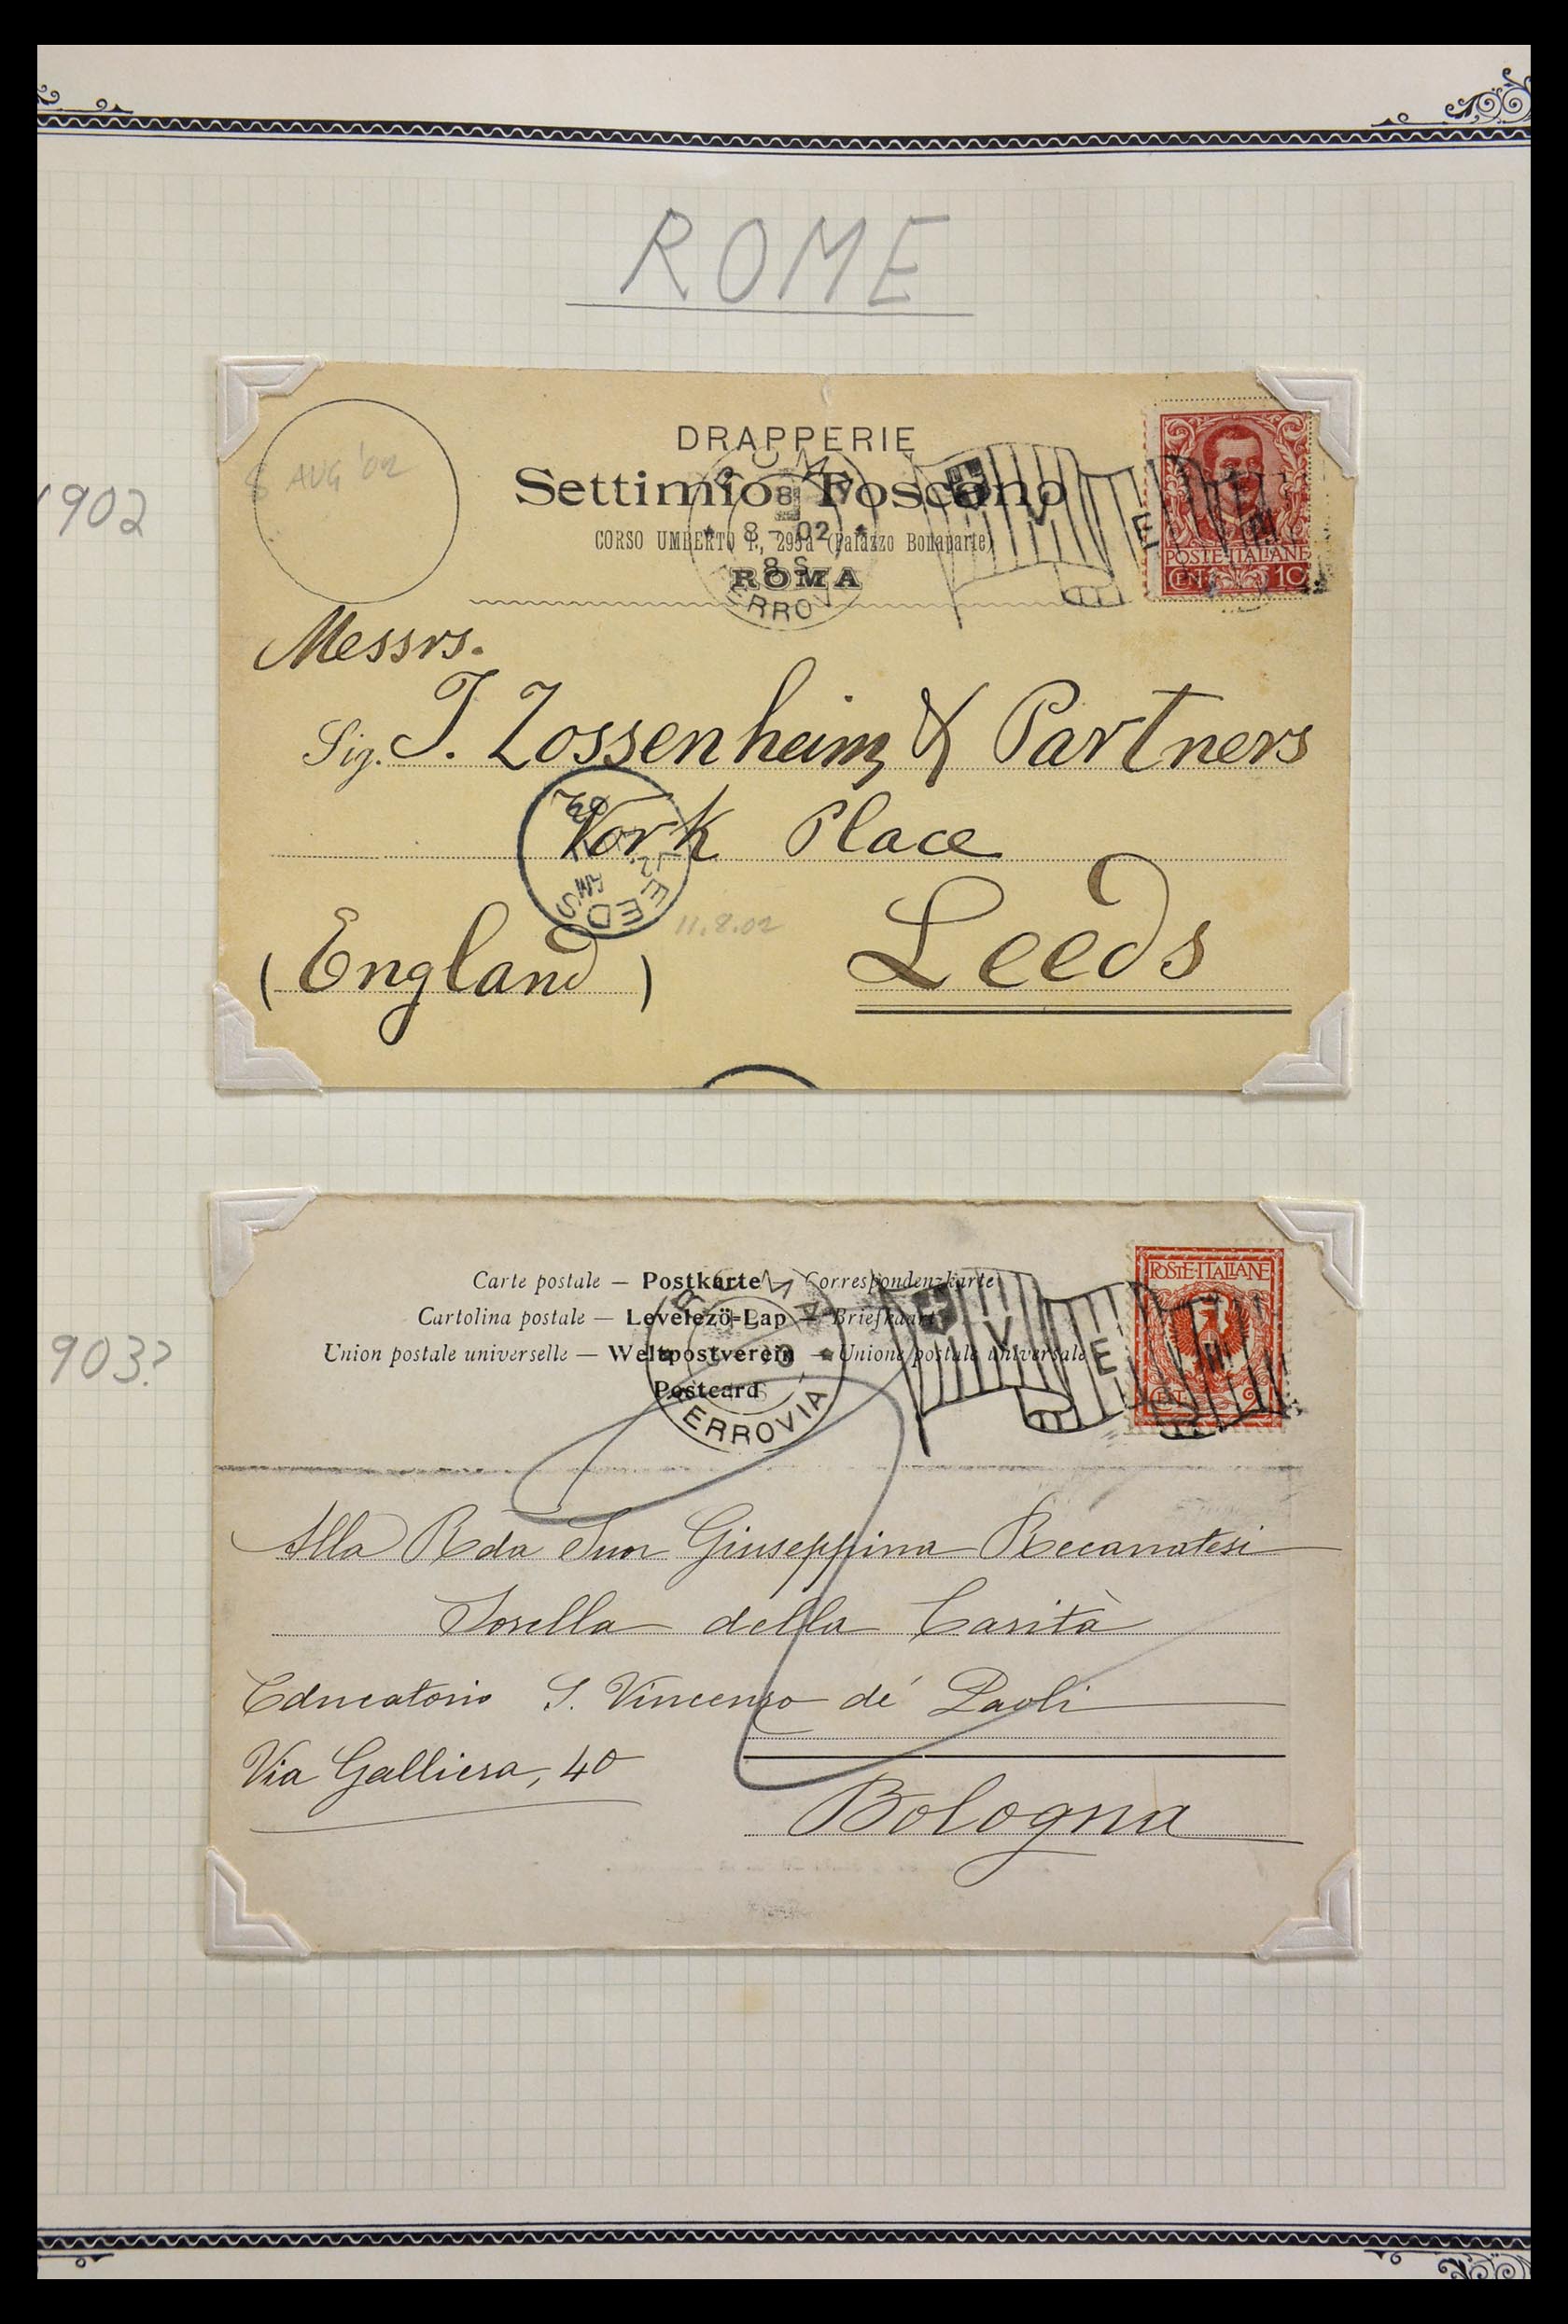 ROME
1902
8 AUG '02
DRAPPERIE
Settimio Foscano
CORSO UMBERTO I., 295a (Palazzo Bonaparte)
ROMA
ROMA
8
8 - 02
8 S
FERROVIA
V E R
POSTE·ITALIANE
CENT. 10
Messrs.
Sig. J. Zossenheim & Partners
York Place
LEEDS
AM
02
11.8.02
(England)
Leeds
903?
Carte postale — Postkarte — Correspondenzkarte
Cartolina postale — Levelezö-Lap — Briefkaart
Union postale universelle — Weltpostverein — Unione postale universale
Postcard
ROMA
FERROVIA
V E R
POSTE·ITALIANE
CENT. 2
Alla Rda Suor Giuseppina Recanatesi
Sorella della Carità
Educatorio S. Vincenzo de' Paoli
Via Galliera, 40
Bologna